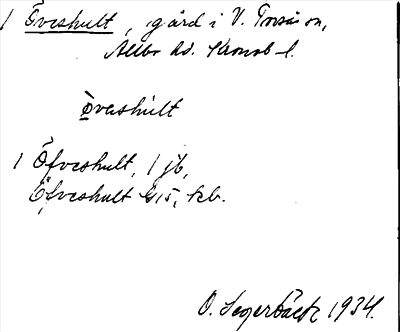 1 Öveshult, gård i V. Torsås sn,
Allbo hd. Kronob l.
öveshùlt
1 Öfveshult, 1 jb,
Öfveshult G15, kb.
O. Segerbäck 1934.